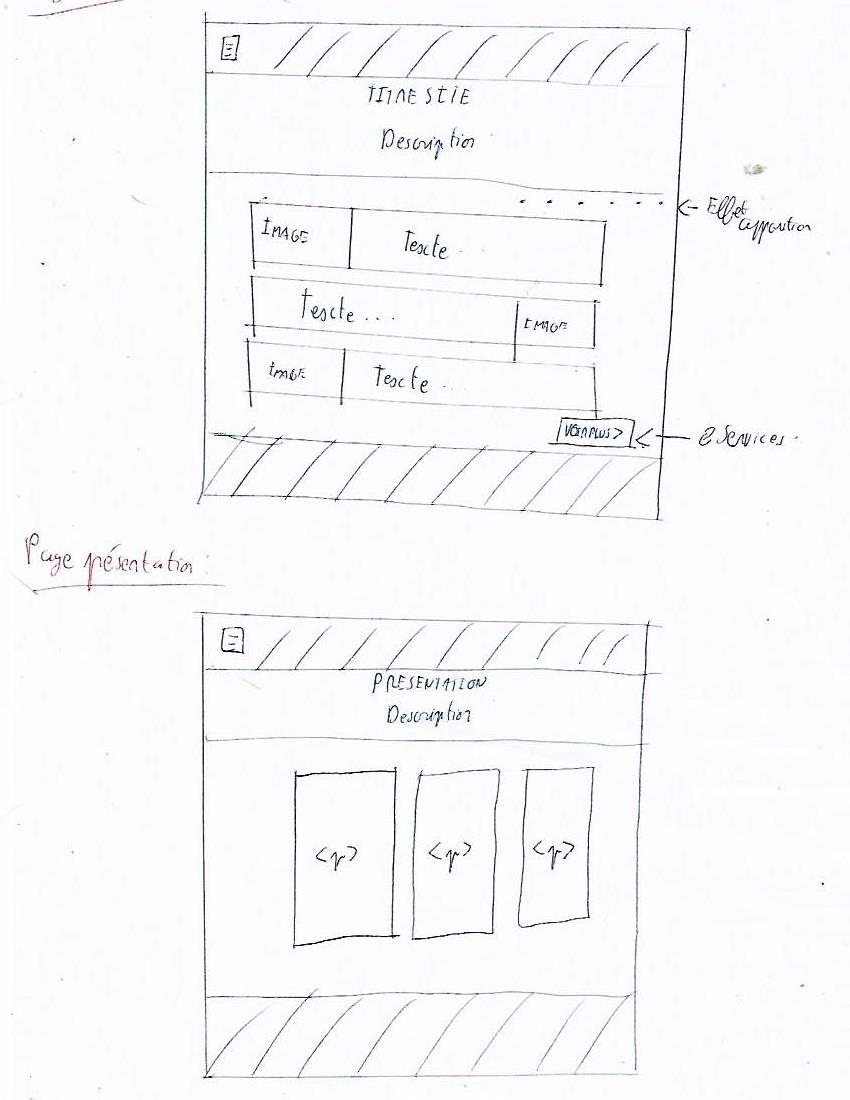 TITRE SITE
Description
Effet
apparition
IMAGE
Texte ..
Texte ...
IMAGE
IMAGE
Texte ...
VOIR PLUS >
Services
Page présentation :
PRESENTATION
Description
<p>
<p>
<p>